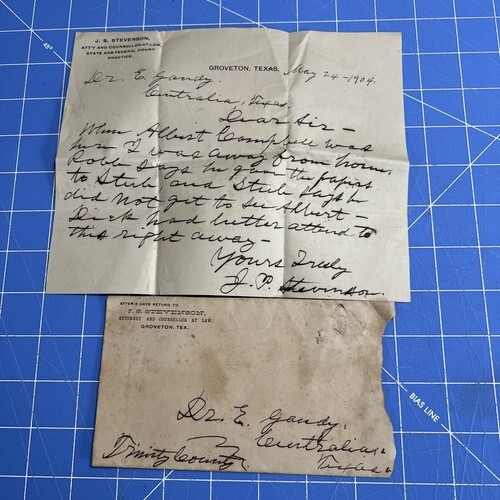 J. S. STEVENSON,
ATT'Y AND COUNSELLOR AT LAW,
STATE AND FEDERAL COURT
PRACTICE.
GROVETON, TEXAS, May 24-1904.
Dr. E. Gandy.
Centralia, Texas.
Dear Sir -
When Albert Campbell was
here I was away from home.
Robb Says he gave the papers
to Stub and Stub Says he
did not get to see Albert -
Dick had better attend to
this right away -
Yours Truly
J. S. Stevenson.
AFTER 5 DAYS RETURN TO
J. S. STEVENSON,
ATTORNEY AND COUNSELLOR AT LAW,
GROVETON, TEX.
Dr. E. Gandy.
Centralia.
Trinity County. Texas.
45°
BIAS LINE